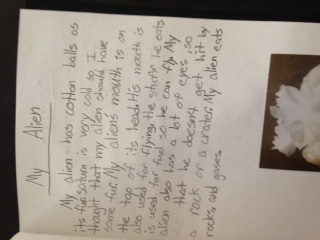 My Alien
My alien has cotton balls as
its fur. Saturn is very cold so I
thought that my alien should have
some fur. My aliens mouth is on
the top of its head. His mouth is
also used for flying, the stuff he eats
is used for fuel so he can fly. My
alien also has a lot of eyes, so
that he doesn't get hit by
a rock or a crater. My alien eats
rocks, and gases.